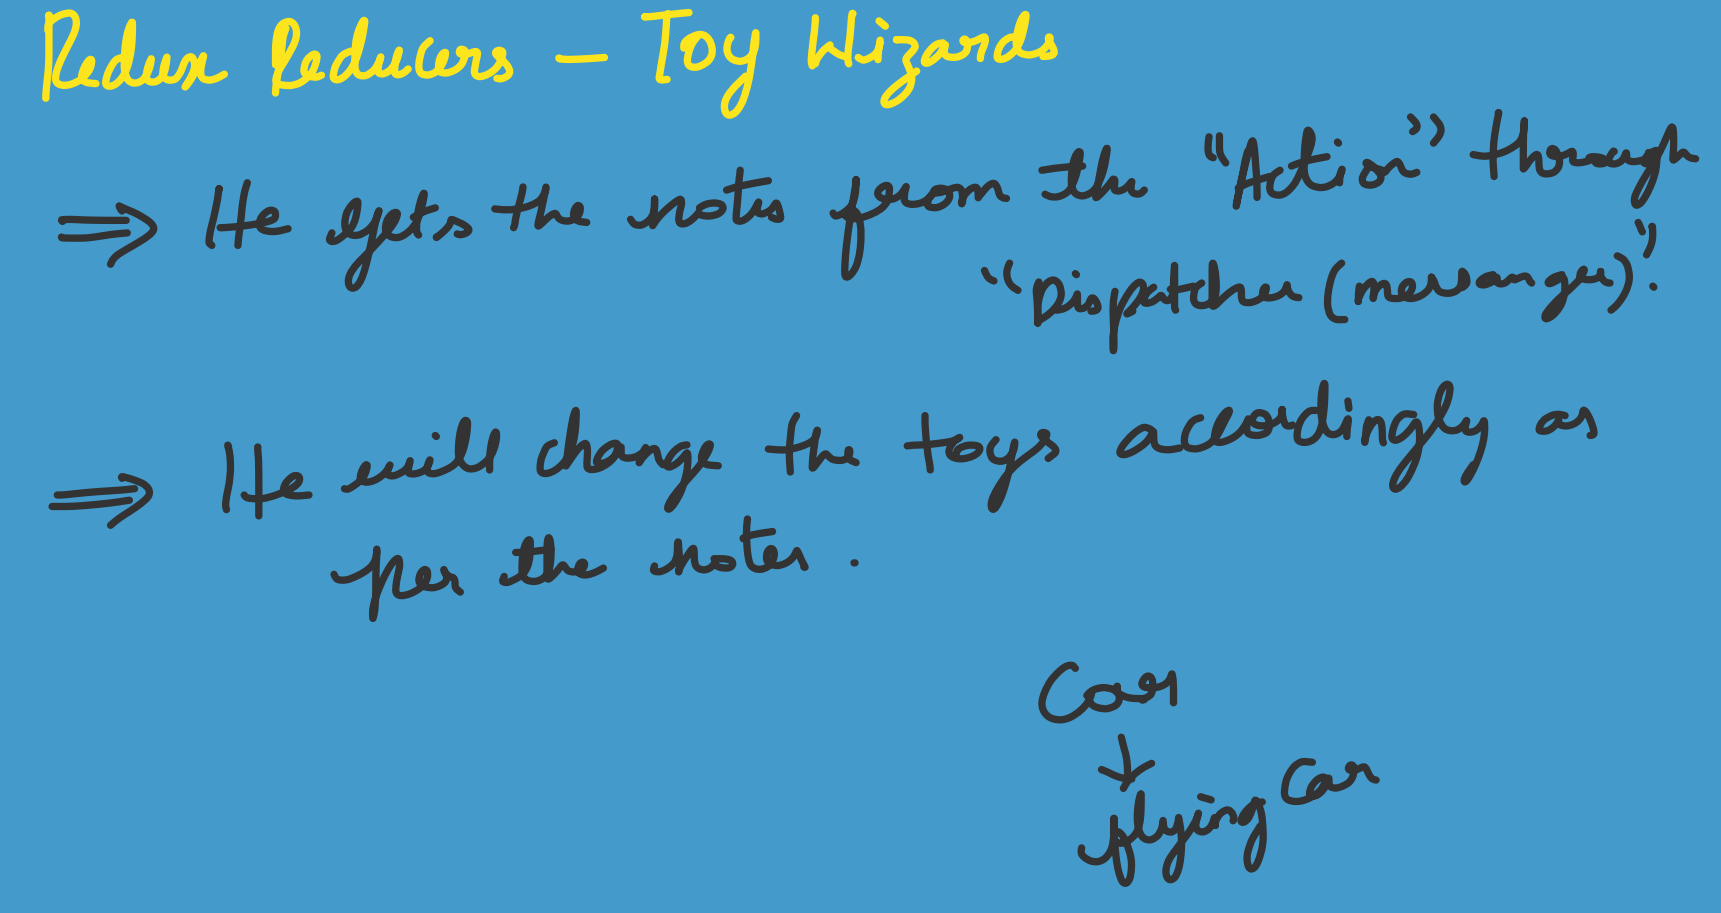 Redux Reducers - Toy Wizards
⇒ He gets the notes from the "Action" through
"Dispatcher (messanger)".
⇒ He will change the toys accordingly as
per the notes.
Car
↓
flying Car